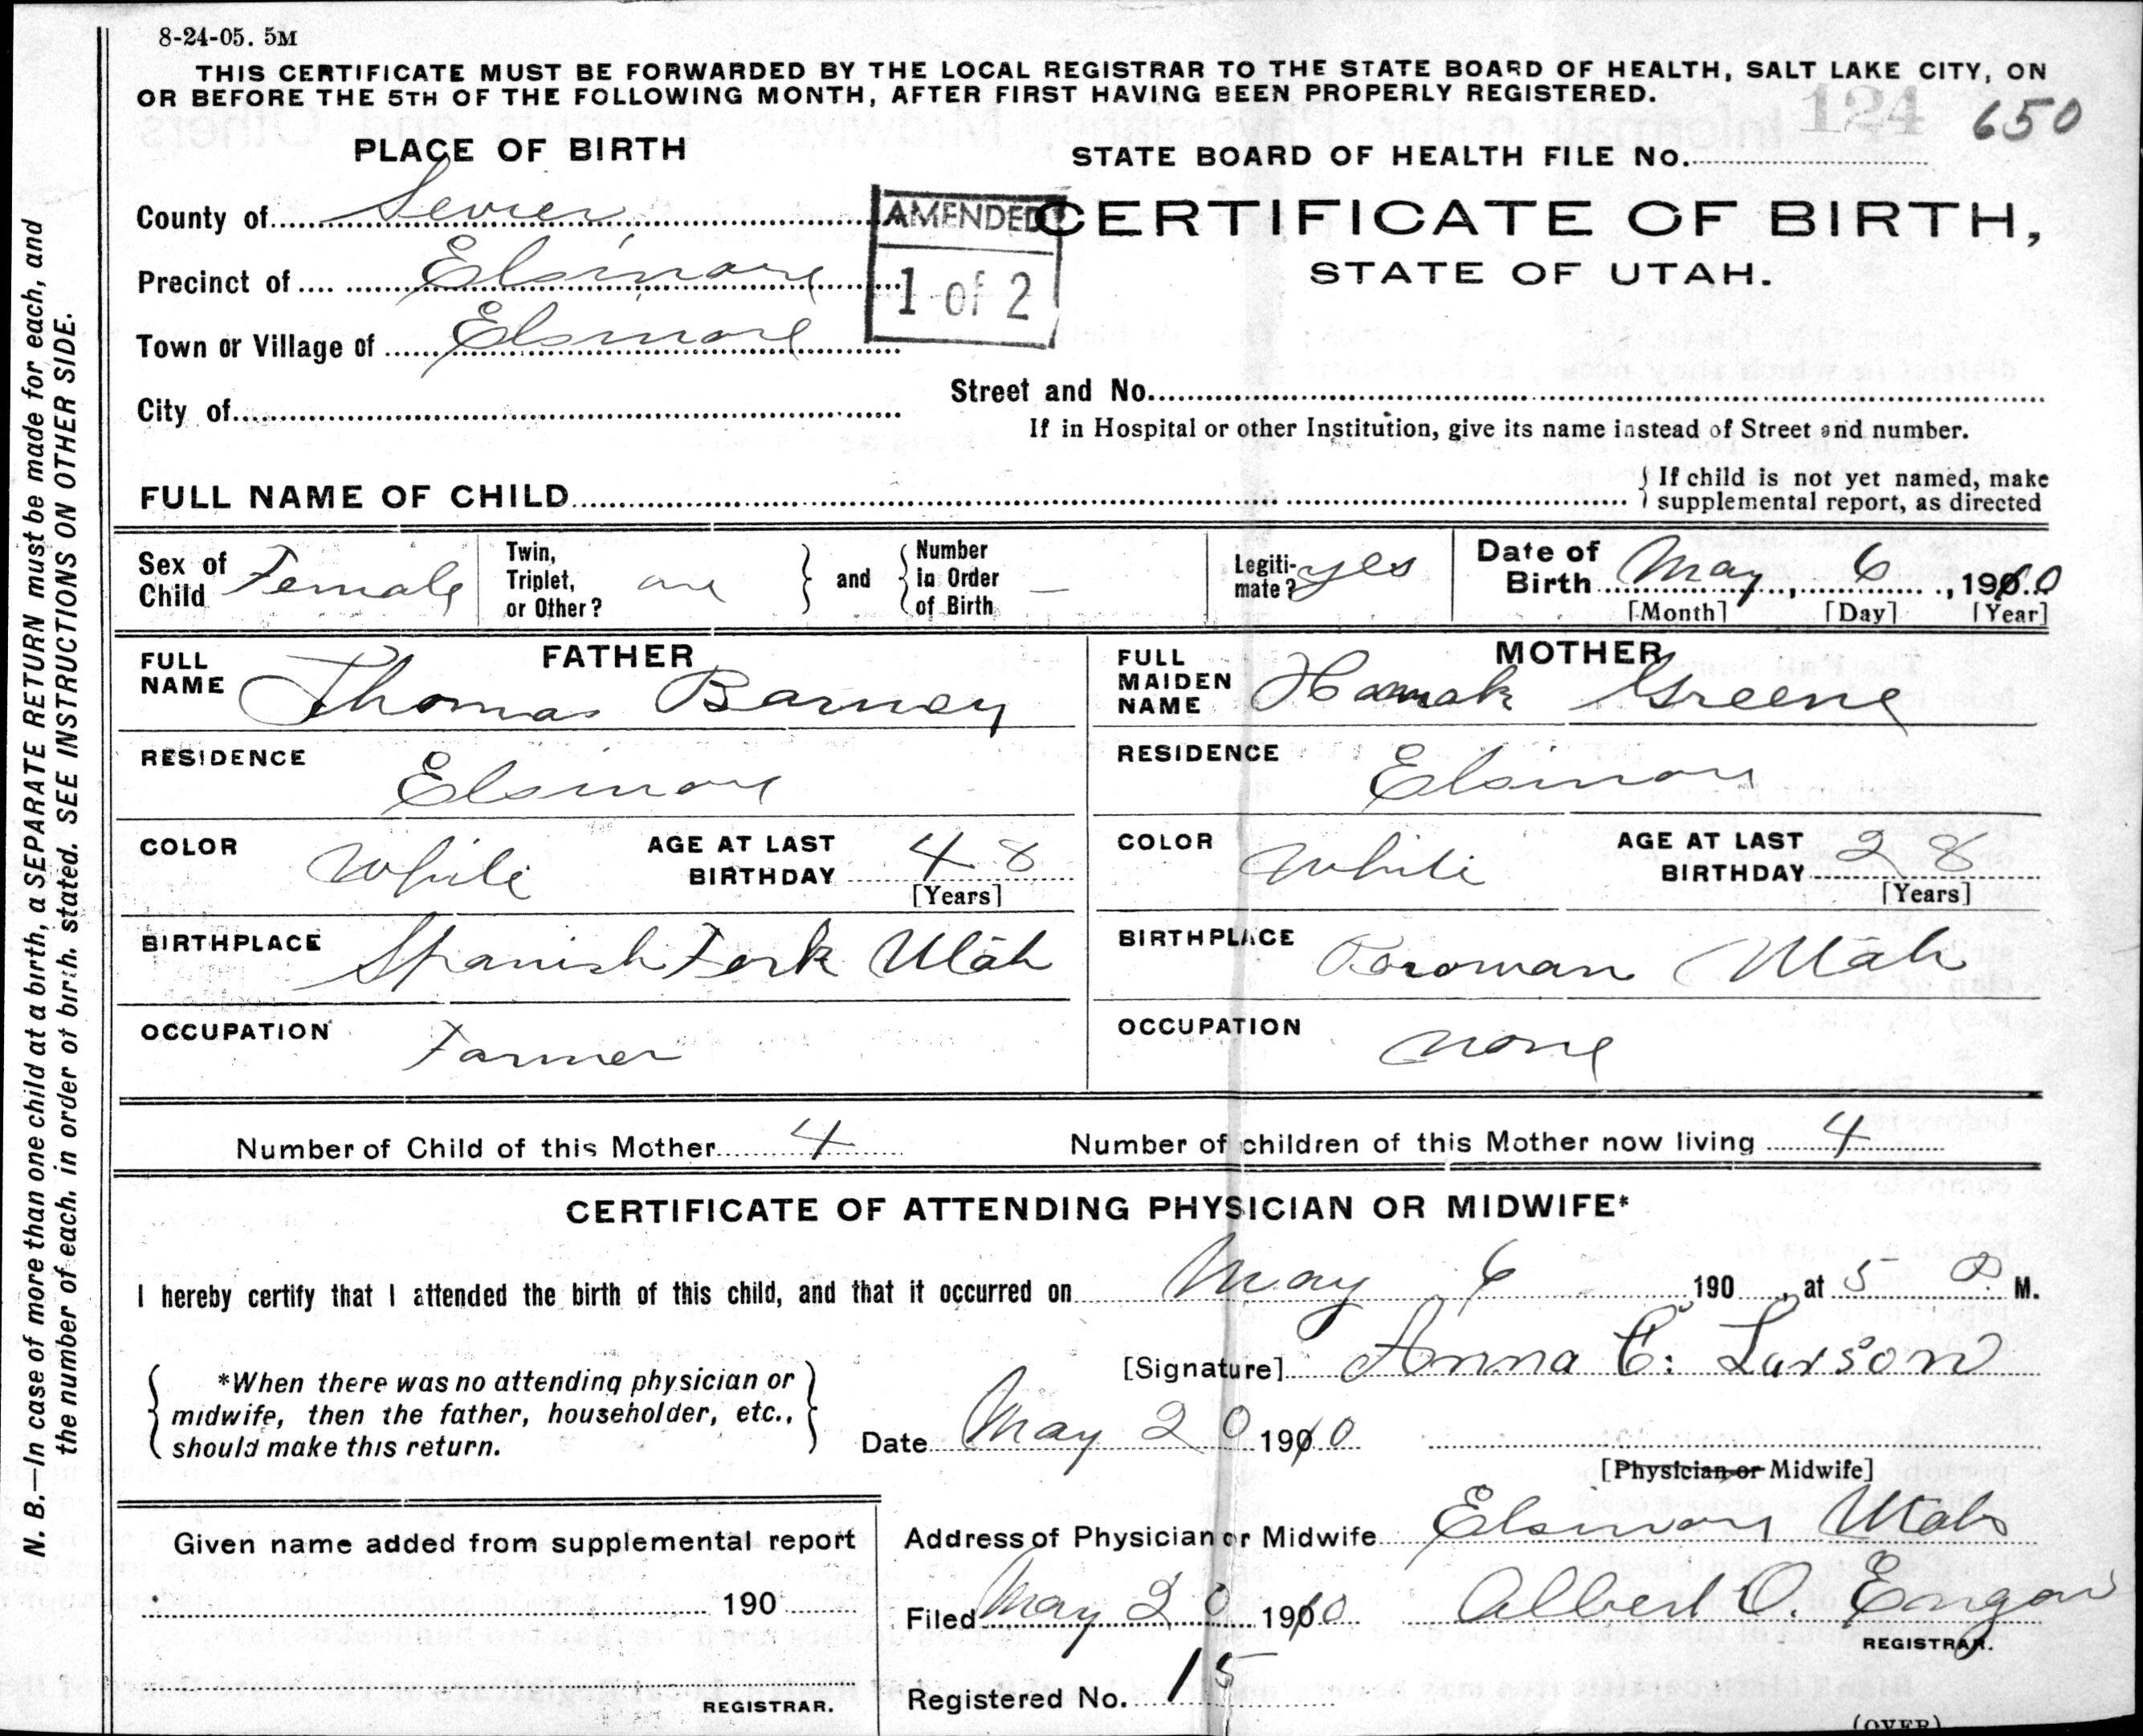 8-24-05. 5M
THIS CERTIFICATE MUST BE FORWARDED BY THE LOCAL REGISTRAR TO THE STATE BOARD OF HEALTH, SALT LAKE CITY, ON
OR BEFORE THE 5TH OF THE FOLLOWING MONTH, AFTER FIRST HAVING BEEN PROPERLY REGISTERED.
124 650
PLACE OF BIRTH
STATE BOARD OF HEALTH FILE No.
County of Sevier
AMENDED
1 of 2
CERTIFICATE OF BIRTH,
STATE OF UTAH.
Precinct of Elsinore
Town or Village of Elsinore
City of
Street and No.
If in Hospital or other Institution, give its name instead of Street and number.
FULL NAME OF CHILD
If child is not yet named, make
supplemental report, as directed
Sex of Child Female
Twin, Triplet, or Other? one
and Number in Order of Birth —
Legitimate? yes
Date of Birth May 6, 1910
[Month] [Day] [Year]
FATHER
FULL NAME Thomas Barney
RESIDENCE Elsinore
COLOR White AGE AT LAST BIRTHDAY 48
[Years]
BIRTHPLACE Spanish Fork Utah
OCCUPATION Farmer
MOTHER
FULL MAIDEN NAME Hannah Greene
RESIDENCE Elsinore
COLOR White AGE AT LAST BIRTHDAY 28
[Years]
BIRTHPLACE Parowan Utah
OCCUPATION none
Number of Child of this Mother 4 Number of children of this Mother now living 4
CERTIFICATE OF ATTENDING PHYSICIAN OR MIDWIFE*
I hereby certify that I attended the birth of this child, and that it occurred on May 6 190 , at 5 P. M.
[Signature] Anna C. Larson
*When there was no attending physician or
midwife, then the father, householder, etc.,
should make this return.
Date May 20 1910
[Physician or Midwife]
Given name added from supplemental report
190
REGISTRAR.
Address of Physician or Midwife Elsinore Utah
Filed May 20 1910 Albert O.
REGISTRAR.
Registered No. 15
(OVER)
N. B.—In case of more than one child at a birth, a SEPARATE RETURN must be made for each, and
the number of each, in order of birth, stated. SEE INSTRUCTIONS ON OTHER SIDE.